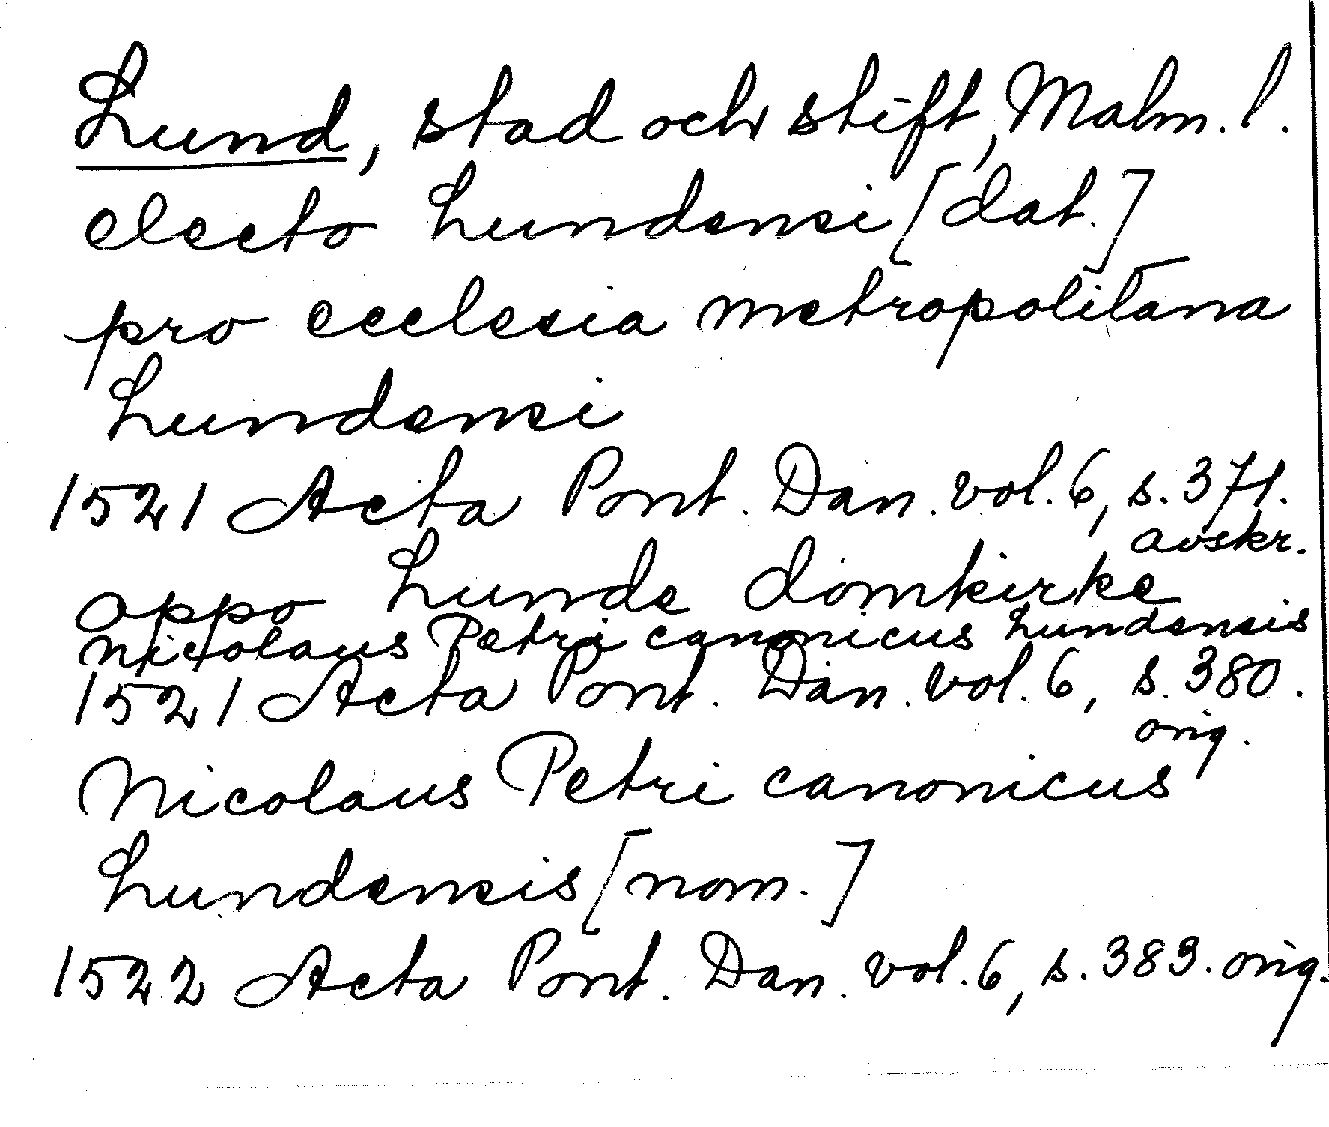 Lund, stad och stift, Malm. l.
electo Lundensi [dat.]
pro ecclesia metropolitana
Lundensi
1521 Acta Pont. Dan. vol. 6, s. 371.
avskr.
oppo Lunde domkirke
Nicolaus Petri canonicus Lundensis
1521 Acta Pont. Dan. vol. 6, s. 380.
orig.
Nicolaus Petri canonicus
Lundensis [nom.]
1522 Acta Pont. Dan. vol. 6, s. 383. orig.